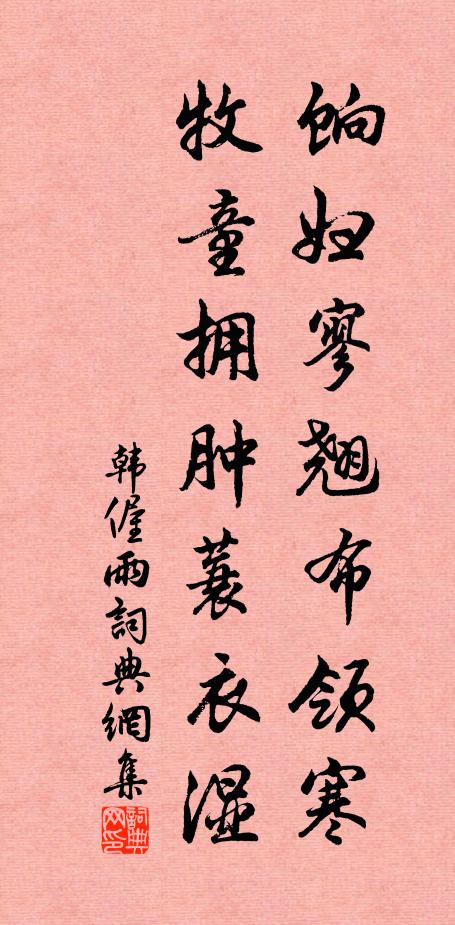 饷妇寥翘布领寒
牧童拥肿蓑衣湿
韩偓雨詞典網集
詞典网印